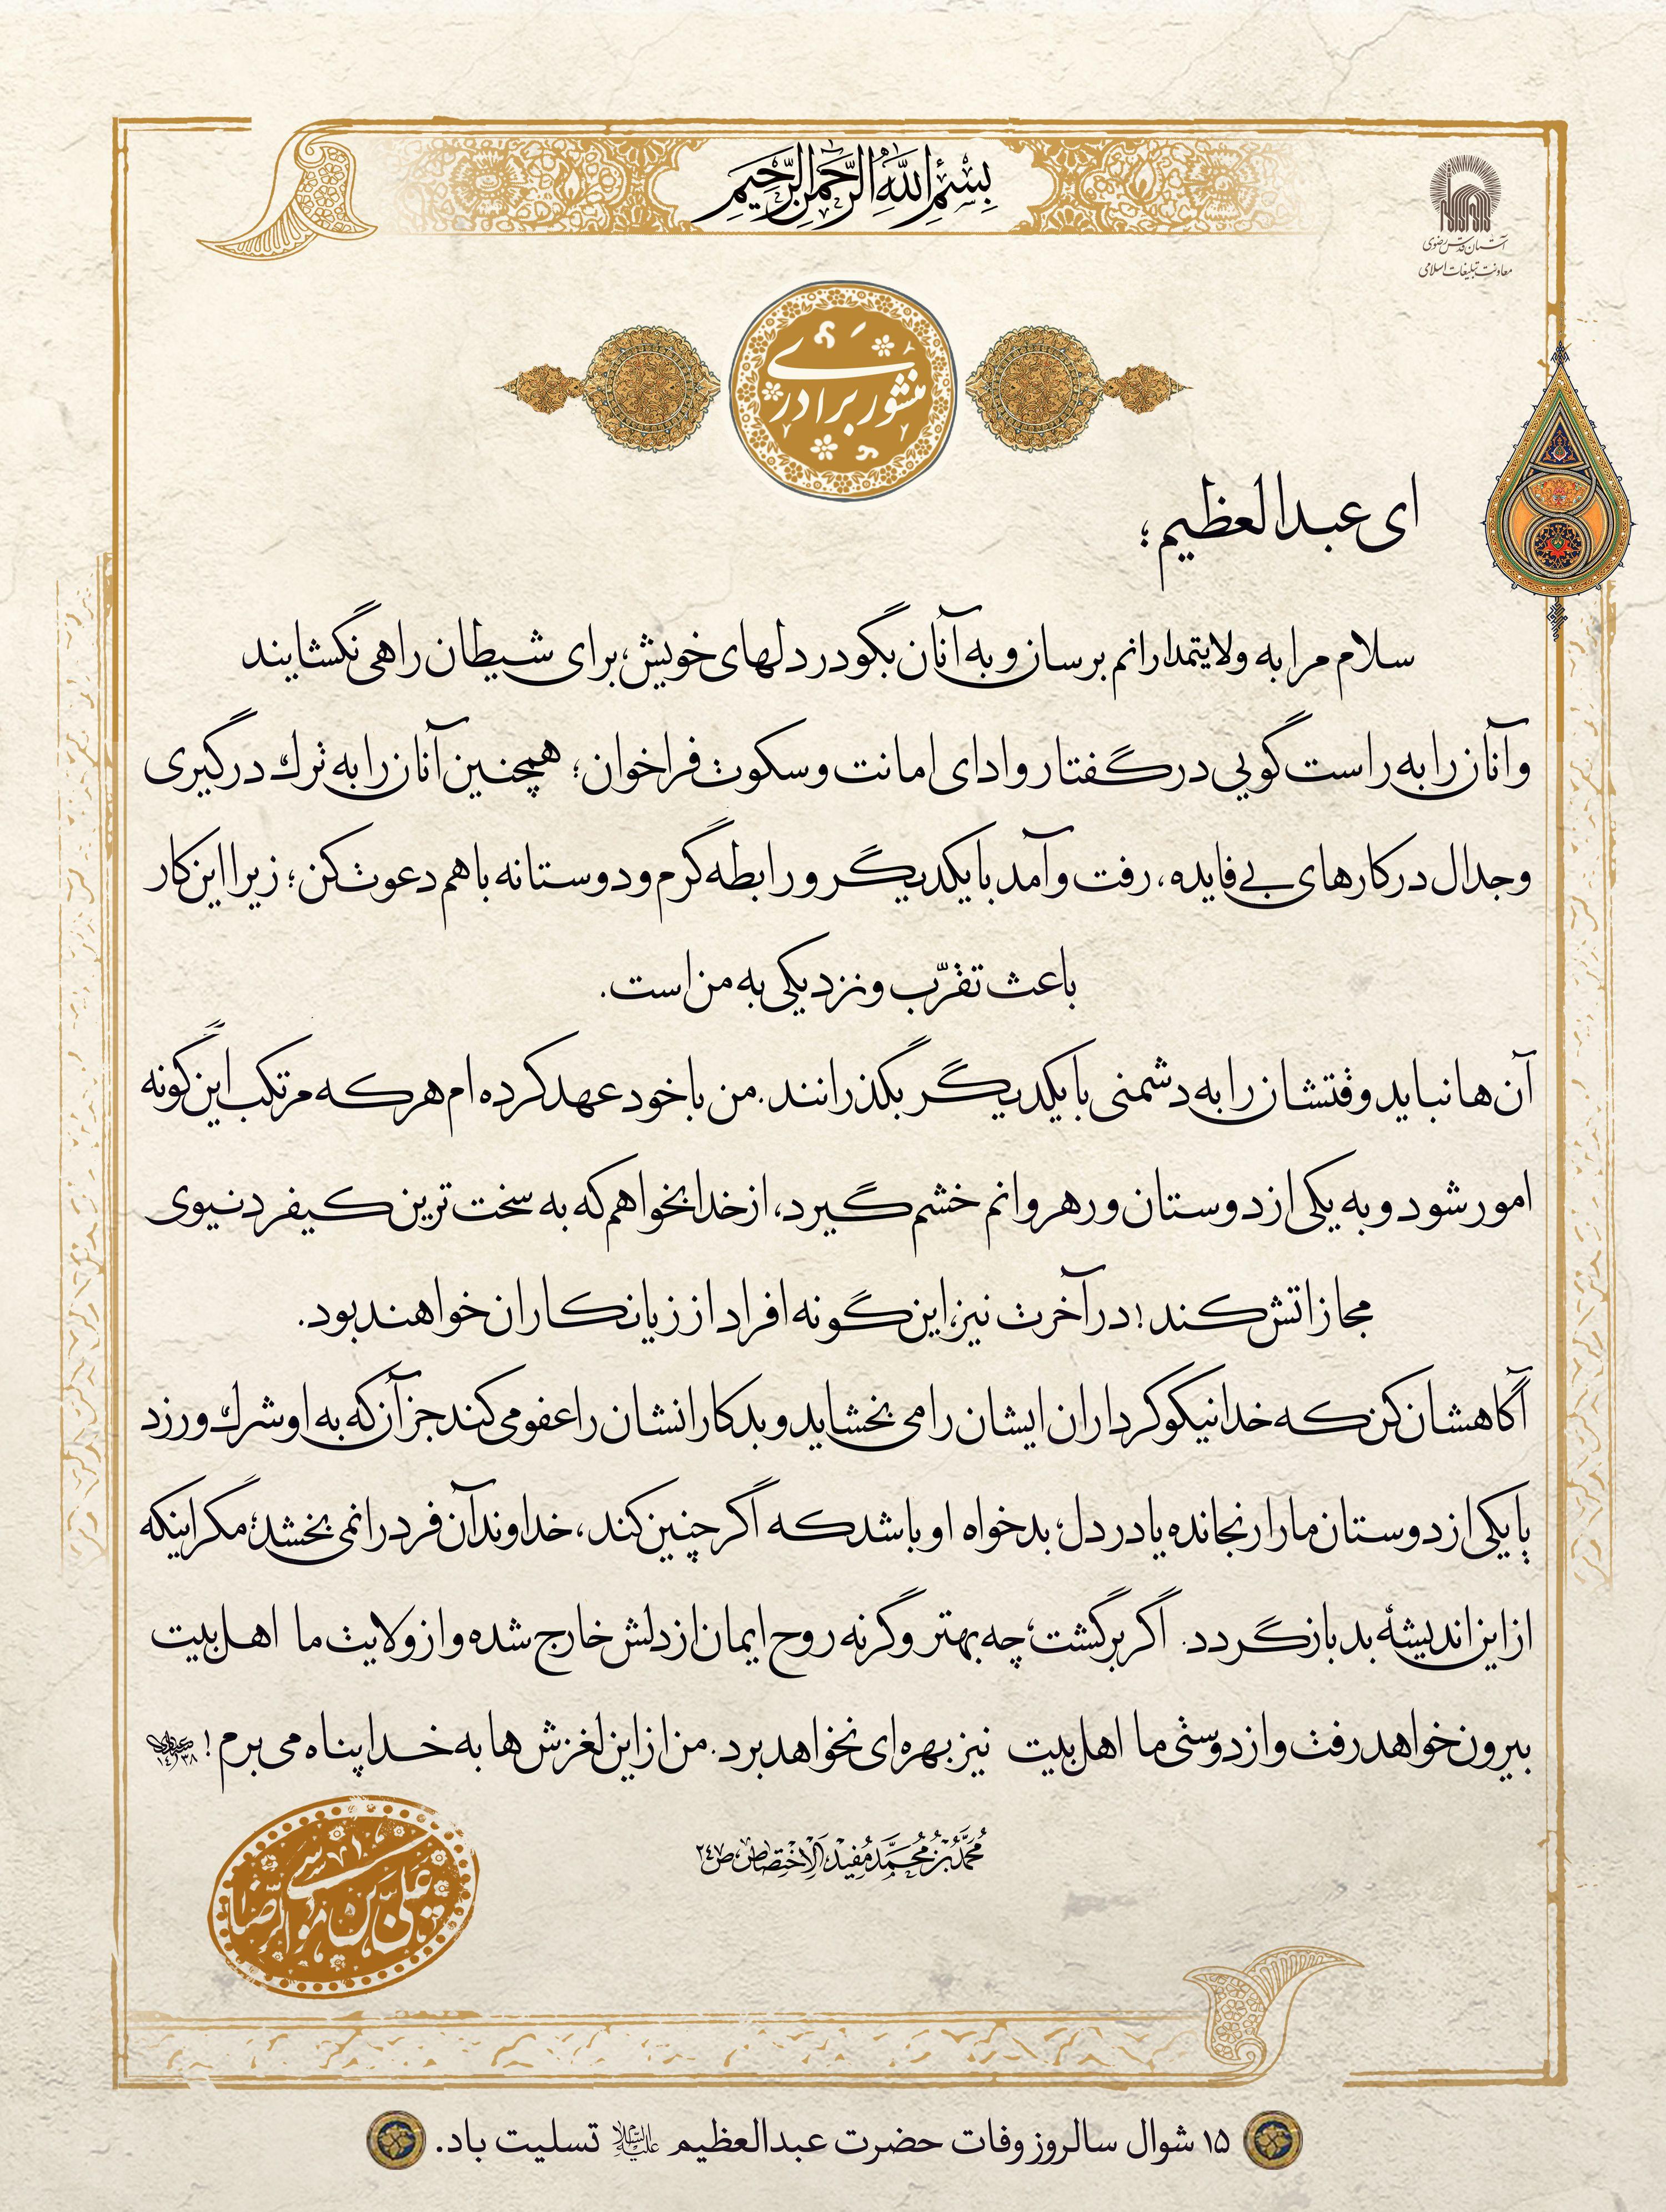 بِسْمِ اللَّهِ الرَّحْمنِ الرَّحِيمِ
آستان قدس رضوی
معاونت تبلیغات اسلامی
منشور برادری
ای عبدالعظیم؛
سلام مرا به ولایتمدارانم برسان و به آنان بگو در دلهای خویش، برای شیطان راهی نگشایند
و آنان را به راست گویی در گفتار و ادای امانت و سکوت فراخوان؛ همچنین آنان را به ترک درگیری
و جدال در کارهای بی فایده، رفت و آمد با یکدیگر و رابطه گرم و دوستانه با هم دعوت کن؛ زیرا این کار
باعث تقرّب و نزدیکی به من است.
آن ها نباید وقتشان را به دشمنی با یکدیگر بگذرانند. من با خود عهد کرده ام هر که مرتکب این گونه
امور شود و به یکی از دوستان و رهروانم خشم گیرد، از خدا بخواهم که به سخت ترین کیفر دنیوی
مجازاتش کند! در آخرت نیز، این گونه افراد از زیانکاران خواهند بود.
آگاهشان کن که خدا نیکوکرداران ایشان را می بخشاید و بدکارانشان را عفو می کند جز آن که به او شرک ورزد
یا یکی از دوستان ما را رنجانده یا در دل، بدخواه او باشد که اگر چنین کند، خداوند آن فرد را نمی بخشد؛ مگر اینکه
از این اندیشهٔ بد بازگردد. اگر برگشت، چه بهتر و گرنه روح ایمان از دلش خارج شده و از ولایت ما اهل بیت
بیرون خواهد رفت و از دوستی ما اهل بیت نیز بهره ای نخواهد برد. من از این لغزش ها به خدا پناه می برم!
۱۴۳۸
مُحَمَّدُ بْنُ مُحَمَّد مُفید، اَلْاِخْتِصاص، ص ۲۴۷
علی بن موسی الرضا
۱۵ شوال سالروز وفات حضرت عبدالعظیم علیه السلام تسلیت باد.